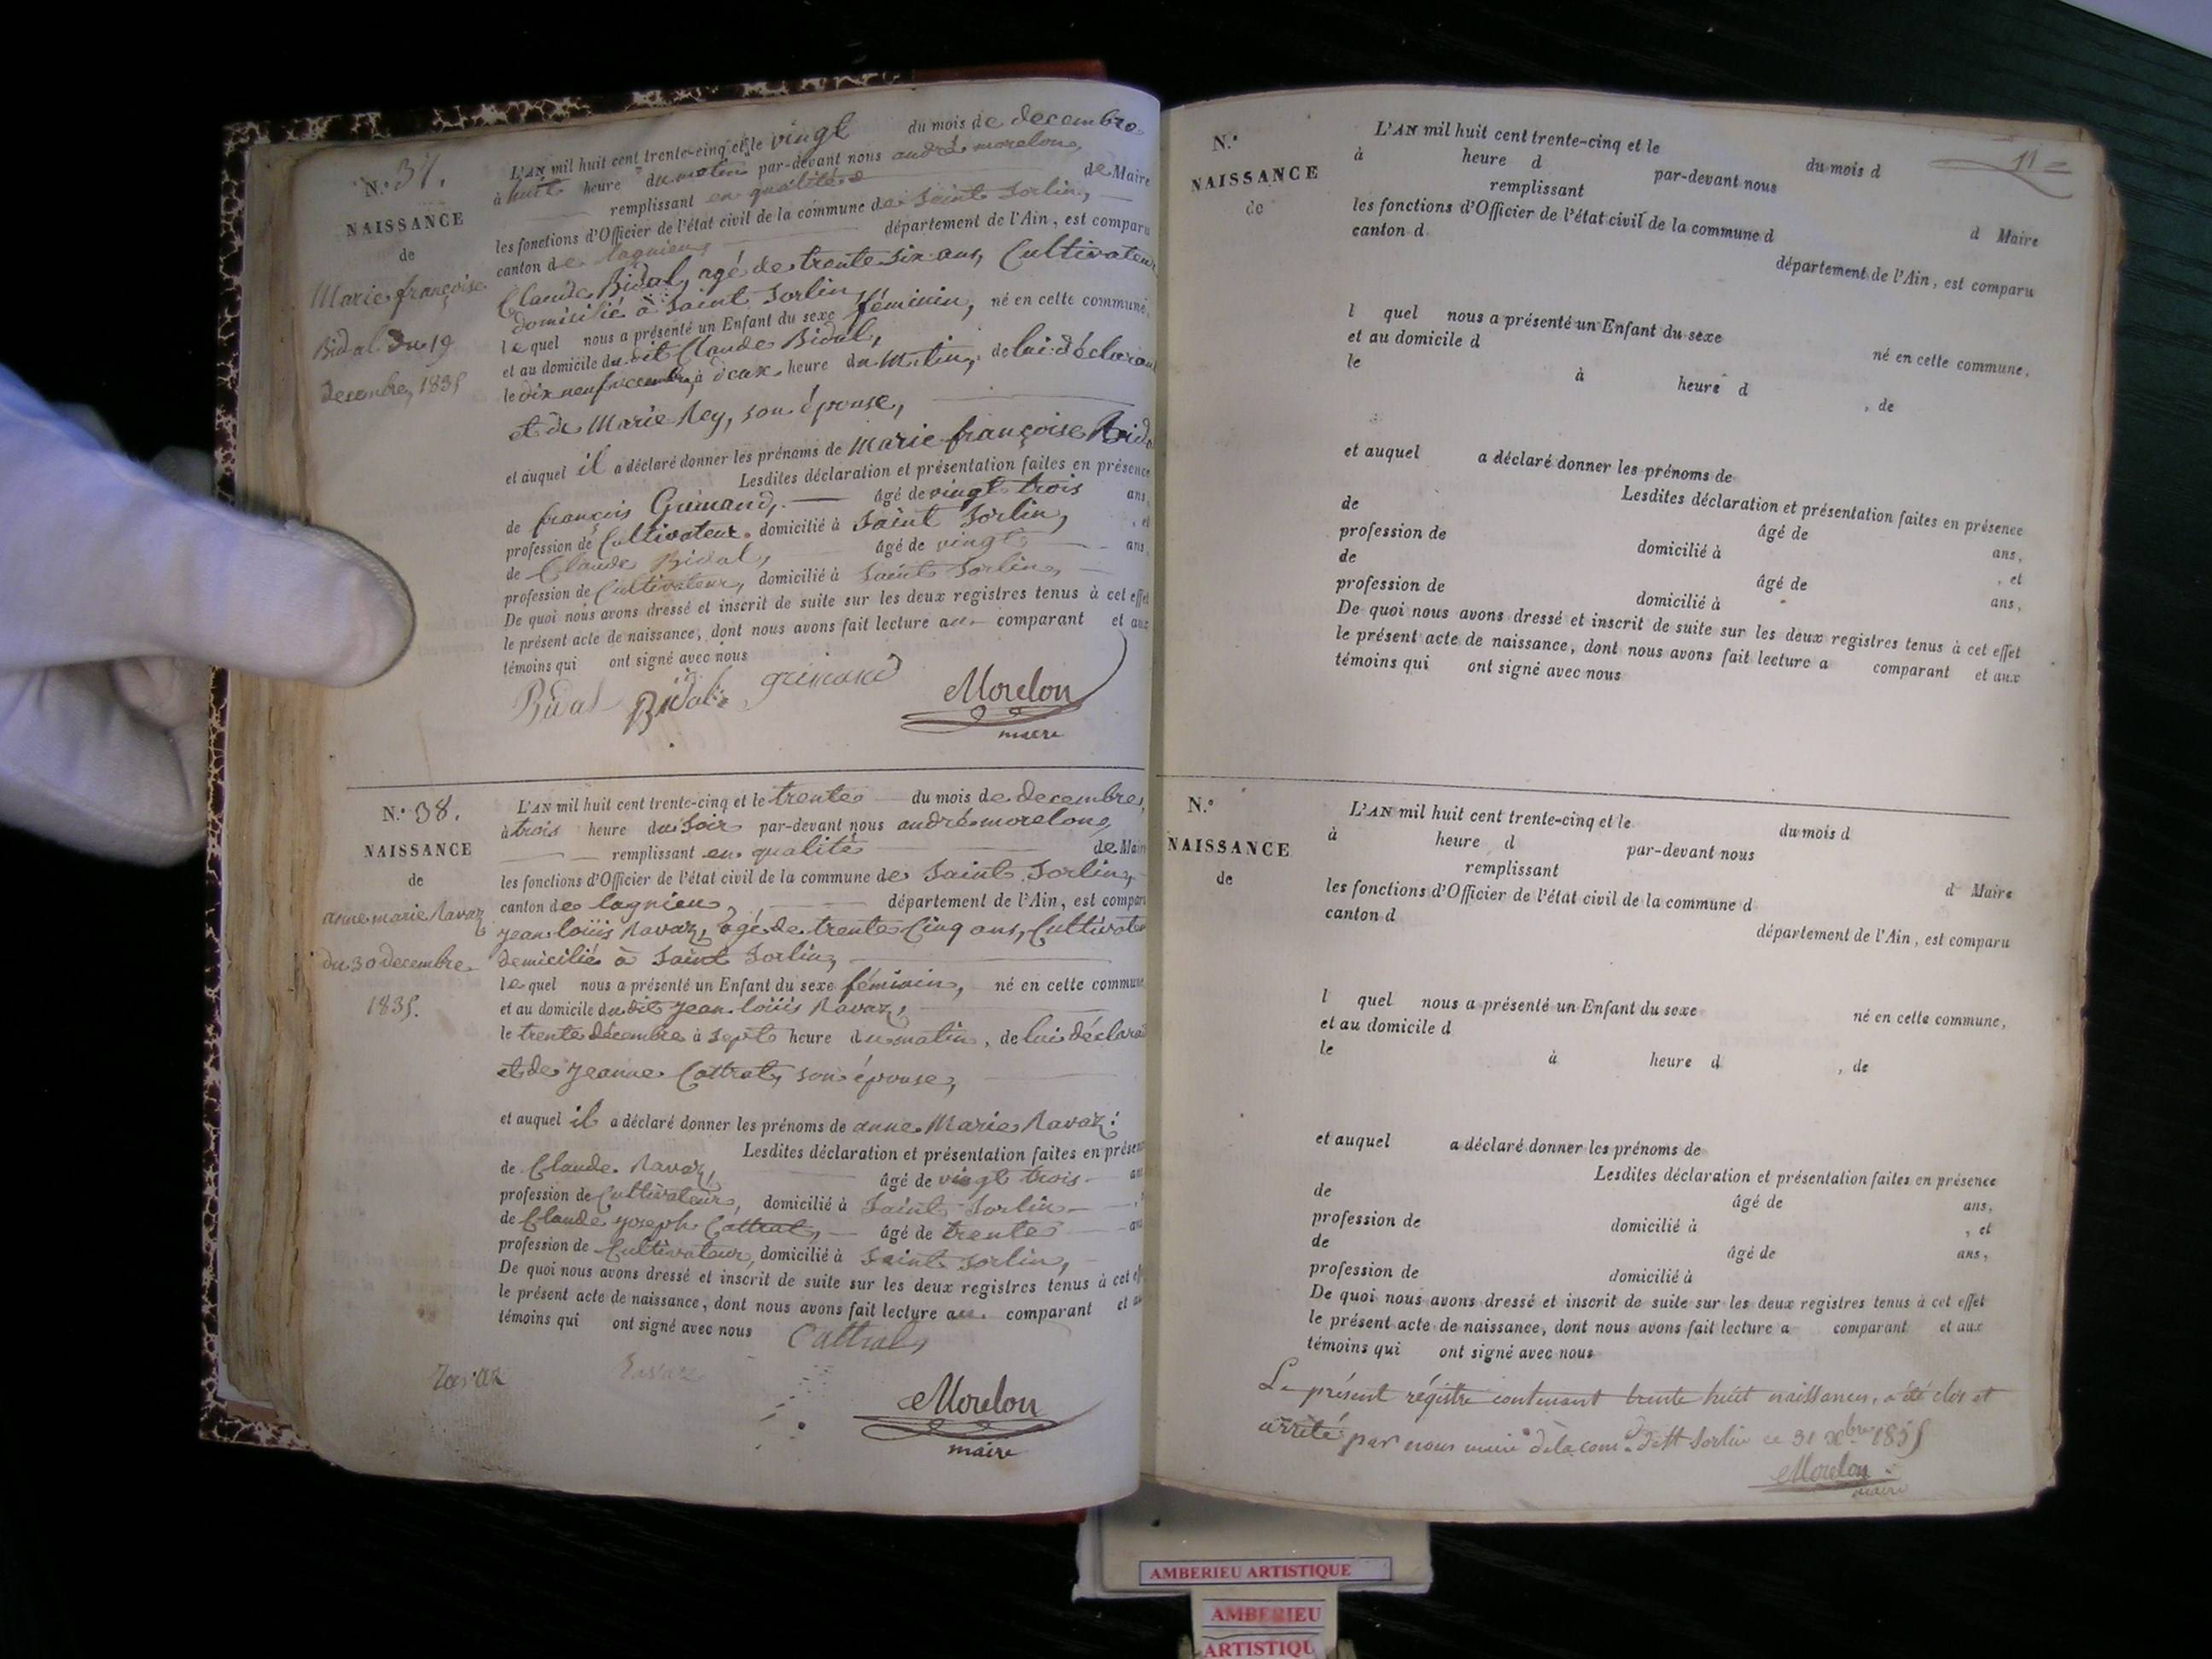 N.° 37.
NAISSANCE
de
Marie françoise
Bidal du 19
decembre, 1835
L'AN mil huit cent trente-cinq et le vingt du mois de decembre
à huit heure du matin par-devant nous andré morelon,
remplissant en qualité de Maire
les fonctions d'Officier de l'état civil de la commune de Saint Sorlin,
canton de lagnieu, département de l'Ain, est comparu
Claude Bidal, agé de trente six ans, Cultivateur
domicilié à Saint Sorlin,
lequel nous a présenté un Enfant du sexe féminin, né en cette commune,
et au domicile du dit Claude Bidal,
le dix neuf à deux heure du Matin, de lui déclarant
et de Marie Rey, son épouse,
et auquel il a déclaré donner les prénoms de Marie françoise Bidal
Lesdites déclaration et présentation faites en présence
de françois Grimand, âgé de vingt trois ans,
profession de Cultivateur, domicilié à Saint Sorlin, , et
de Claude Bidal, âgé de vingt ans,
profession de Cultivateur, domicilié à Saint Sorlin,
De quoi nous avons dressé et inscrit de suite sur les deux registres tenus à cet effet
le présent acte de naissance, dont nous avons fait lecture au comparant et aux
témoins qui ont signé avec nous
Bidal Bidal grimand Morelon
maire
N.° 38.
NAISSANCE
de
anne marie Ravaz
du 30 decembre
1835.
L'AN mil huit cent trente-cinq et le trente du mois de decembre,
à trois heure du Soir par-devant nous andré morelon,
remplissant en qualité de Maire
les fonctions d'Officier de l'état civil de la commune de Saint Sorlin,
canton de lagnieu, département de l'Ain, est comparu
jean loüis Ravaz, agé de trente Cinq ans, Cultivateur
domicilié à Saint Sorlin,
lequel nous a présenté un Enfant du sexe féminin, né en cette commune
et au domicile du dit jean loüis Ravaz,
le trente décembre à sept heure du matin, de lui déclarant
et de jeanne Cottrat, son épouse,
et auquel il a déclaré donner les prénoms de anne Marie Ravaz:
Lesdites déclaration et présentation faites en présence
de Claude Ravaz, âgé de vingt trois ans
profession de Cultivateur, domicilié à Saint Sorlin
de Claude joseph Cottrat, âgé de trente ans
profession de Cultivateur, domicilié à Saint Sorlin,
De quoi nous avons dressé et inscrit de suite sur les deux registres tenus à cet effet
le présent acte de naissance, dont nous avons fait lecture au comparant et aux
témoins qui ont signé avec nous Cattral
Ravaz Ravaz
Morelon
maire
11
N.°
NAISSANCE
de
L'AN mil huit cent trente-cinq et le du mois d
à heure d par-devant nous
remplissant d Maire
les fonctions d'Officier de l'état civil de la commune d
canton d département de l'Ain, est comparu
l quel nous a présenté un Enfant du sexe né en cette commune,
et au domicile d
le à heure d , de
et auquel a déclaré donner les prénoms de
Lesdites déclaration et présentation faites en présence
de âgé de ans,
profession de domicilié à , et
de âgé de ans,
profession de domicilié à
De quoi nous avons dressé et inscrit de suite sur les deux registres tenus à cet effet
le présent acte de naissance, dont nous avons fait lecture a comparant et aux
témoins qui ont signé avec nous
N.°
NAISSANCE
de
L'AN mil huit cent trente-cinq et le du mois d
à heure d par-devant nous
remplissant d Maire
les fonctions d'Officier de l'état civil de la commune d
canton d département de l'Ain, est comparu
l quel nous a présenté un Enfant du sexe né en cette commune,
et au domicile d
le à heure d , de
et auquel a déclaré donner les prénoms de
Lesdites déclaration et présentation faites en présence
de âgé de ans,
profession de domicilié à , et
de âgé de ans,
profession de domicilié à
De quoi nous avons dressé et inscrit de suite sur les deux registres tenus à cet effet
le présent acte de naissance, dont nous avons fait lecture a comparant et aux
témoins qui ont signé avec nous
Le présent régistre contenant trente huit naissances, a été clos et
arrêté par nous maire de la com.e de St Sorlin ce 31 Xbre 1835
Morelon
maire
AMBERIEU ARTISTIQUE
AMBERIEU
ARTISTIQU